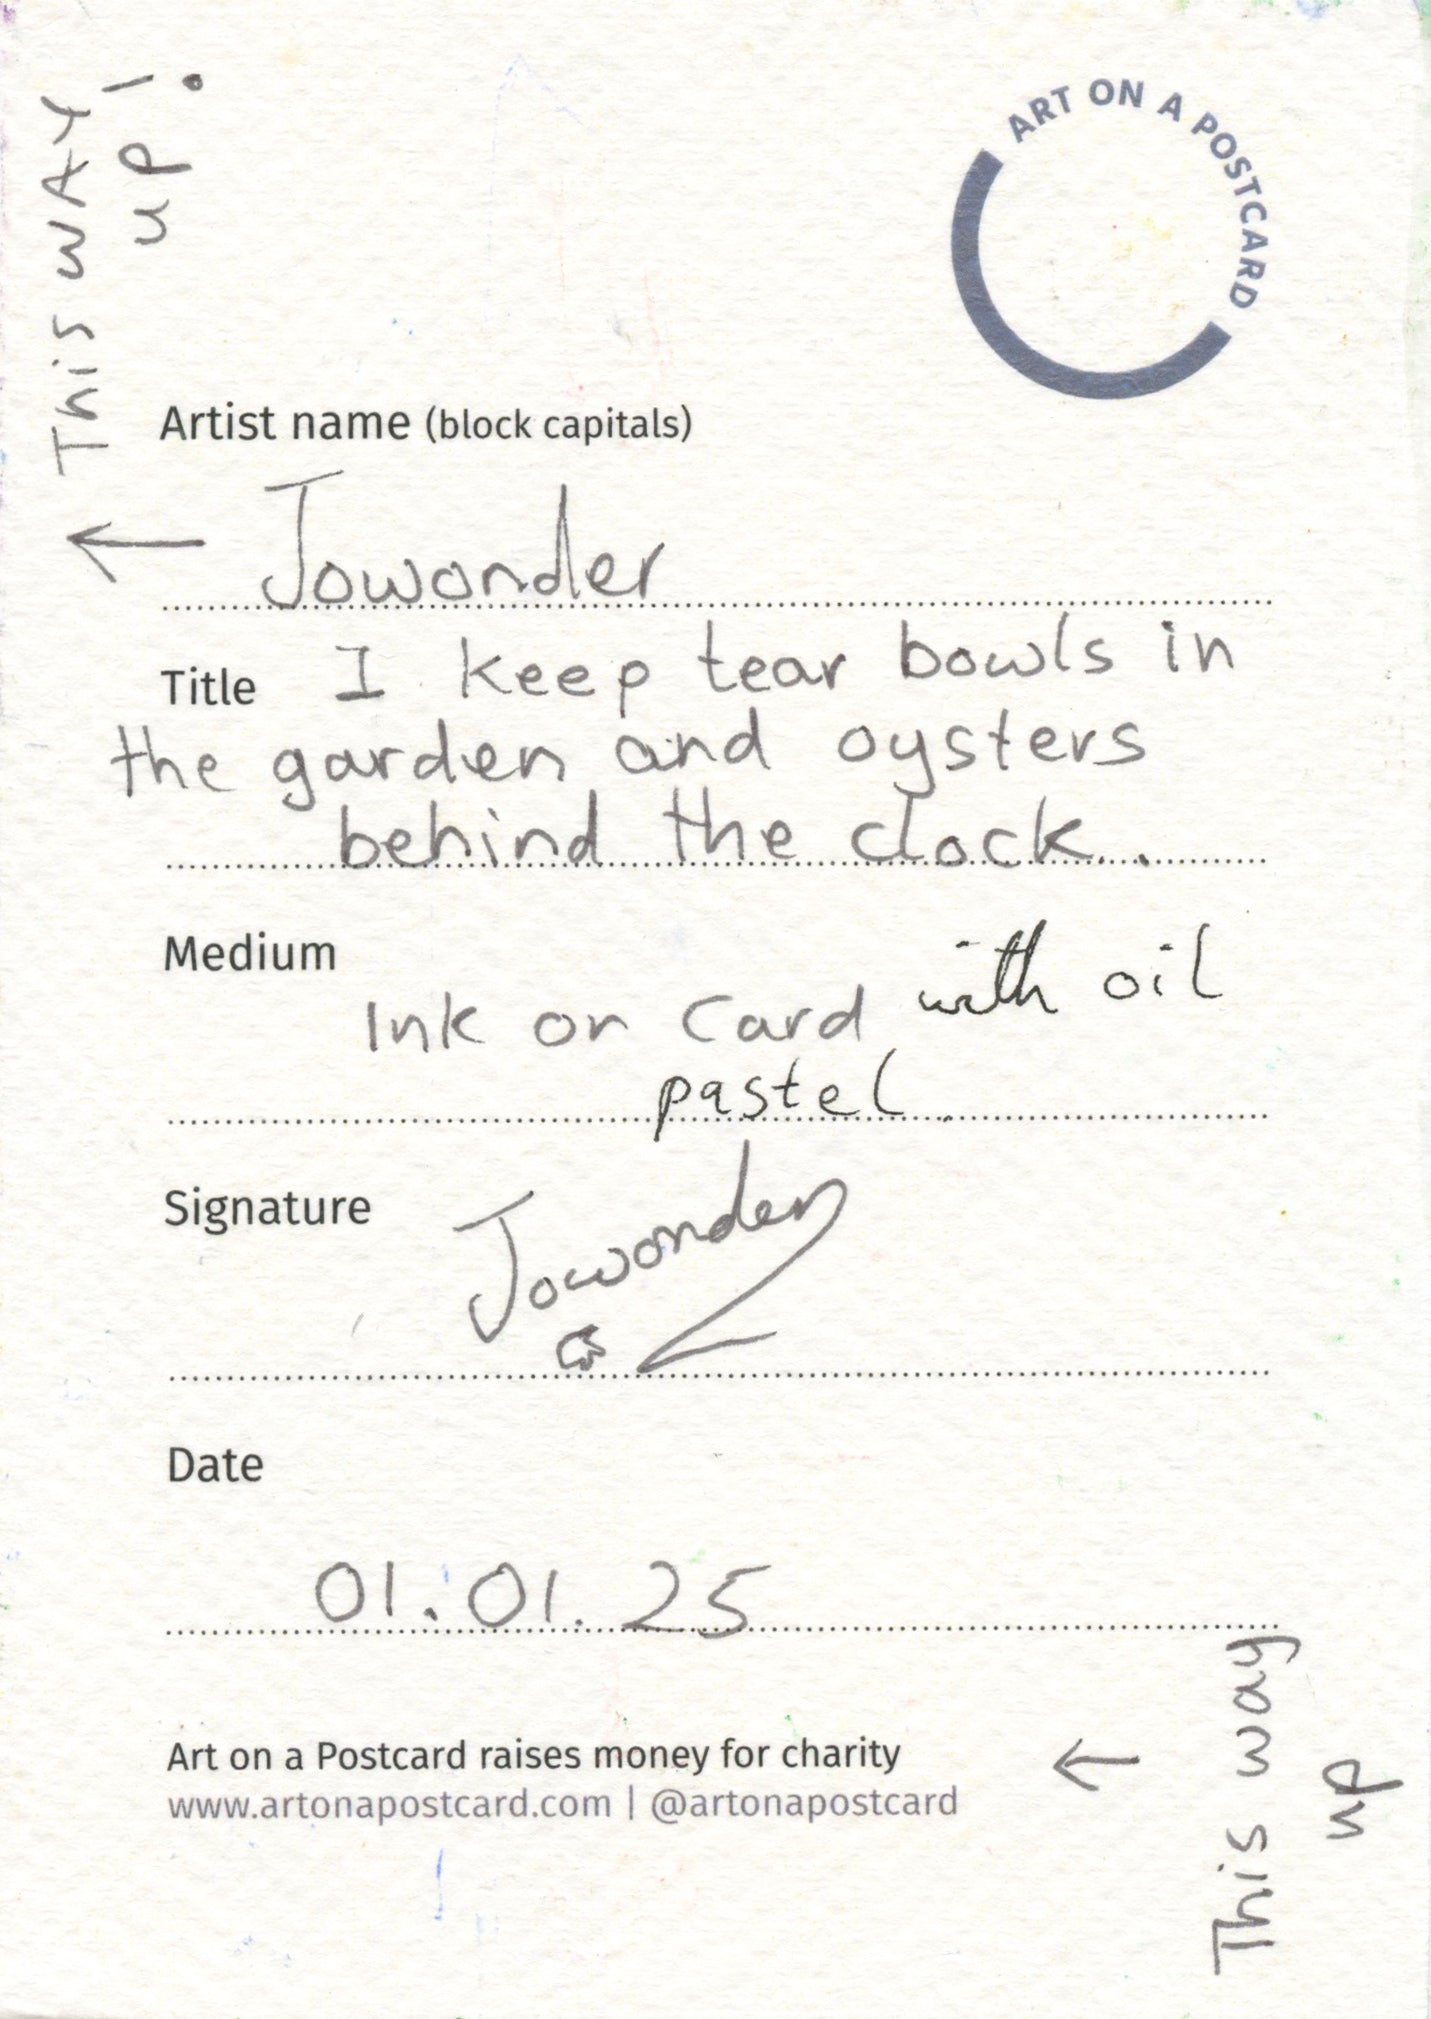 This WAY
up!
ART ON A POSTCARD
Artist name (block capitals)
Jowonder
Title I keep tear bowls in
the garden and oysters
behind the clock.
Medium
Ink on Card with oil
pastel
Signature Jowonder
Date
01.01.25
This way
up
Art on a Postcard raises money for charity
www.artonapostcard.com | @artonapostcard